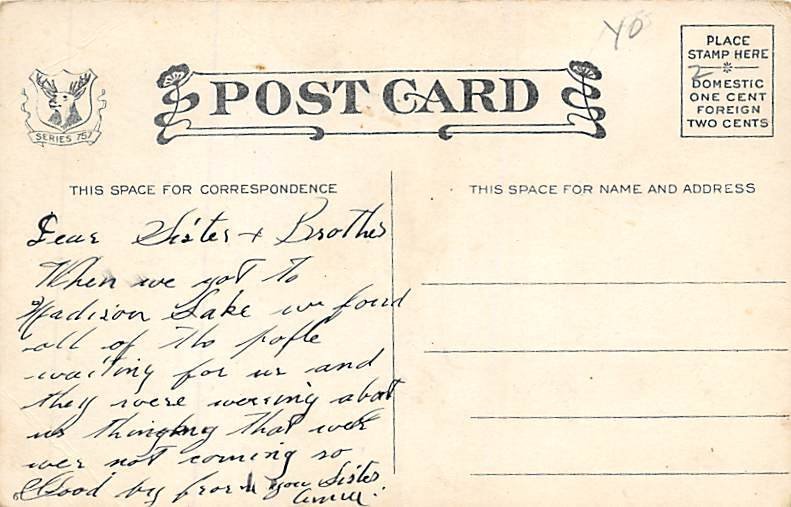 YO
PLACE
STAMP HERE
2
DOMESTIC
ONE CENT
FOREIGN
TWO CENTS
POST CARD
SERIES 757
THIS SPACE FOR CORRESPONDENCE
THIS SPACE FOR NAME AND ADDRESS
Dear Sister + Brother
When we got to
Madison Lake we found
all of the pople
waiting for us and
they were werring about
us thinging that
wer not coming so
Good by from you Sister